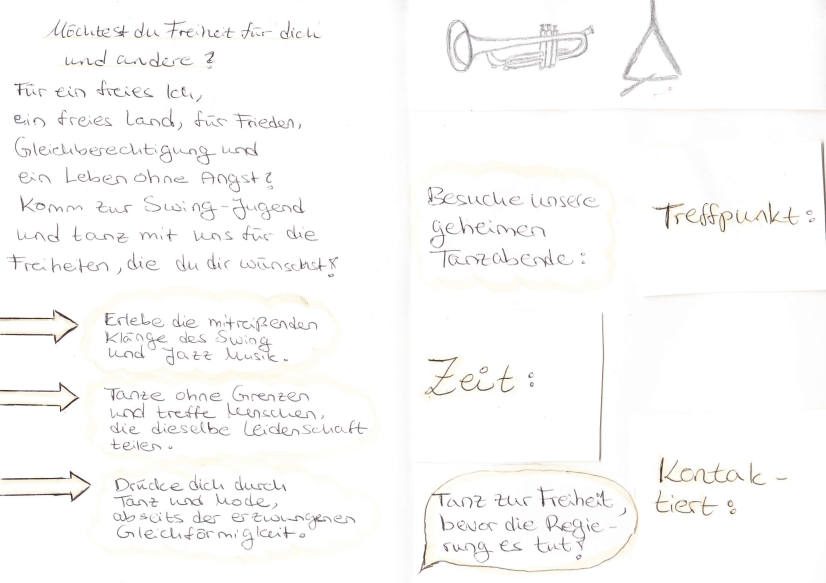 Möchtest du Freiheit für dich
und andere?
Für ein freies Ich,
ein freies Land, für Frieden,
Gleichberechtigung und
ein Leben ohne Angst?
Komm zur Swing-Jugend
und tanz mit uns für die
Freiheiten, die du dir wünschst!
Erlebe die mitreißenden
Klänge des Swing
und Jazz Musik.
Tanze ohne Grenzen
und treffe Menschen,
die dieselbe Leidenschaft
teilen.
Drücke dich durch
Tanz und Mode,
abseits der erzwungenen
Gleichförmigkeit.
Besuche unsere
geheimen
Tanzabende:
Treffpunkt:
Zeit:
Kontak-
tiert:
Tanz zur Freiheit,
bevor die Regie-
rung es tut!